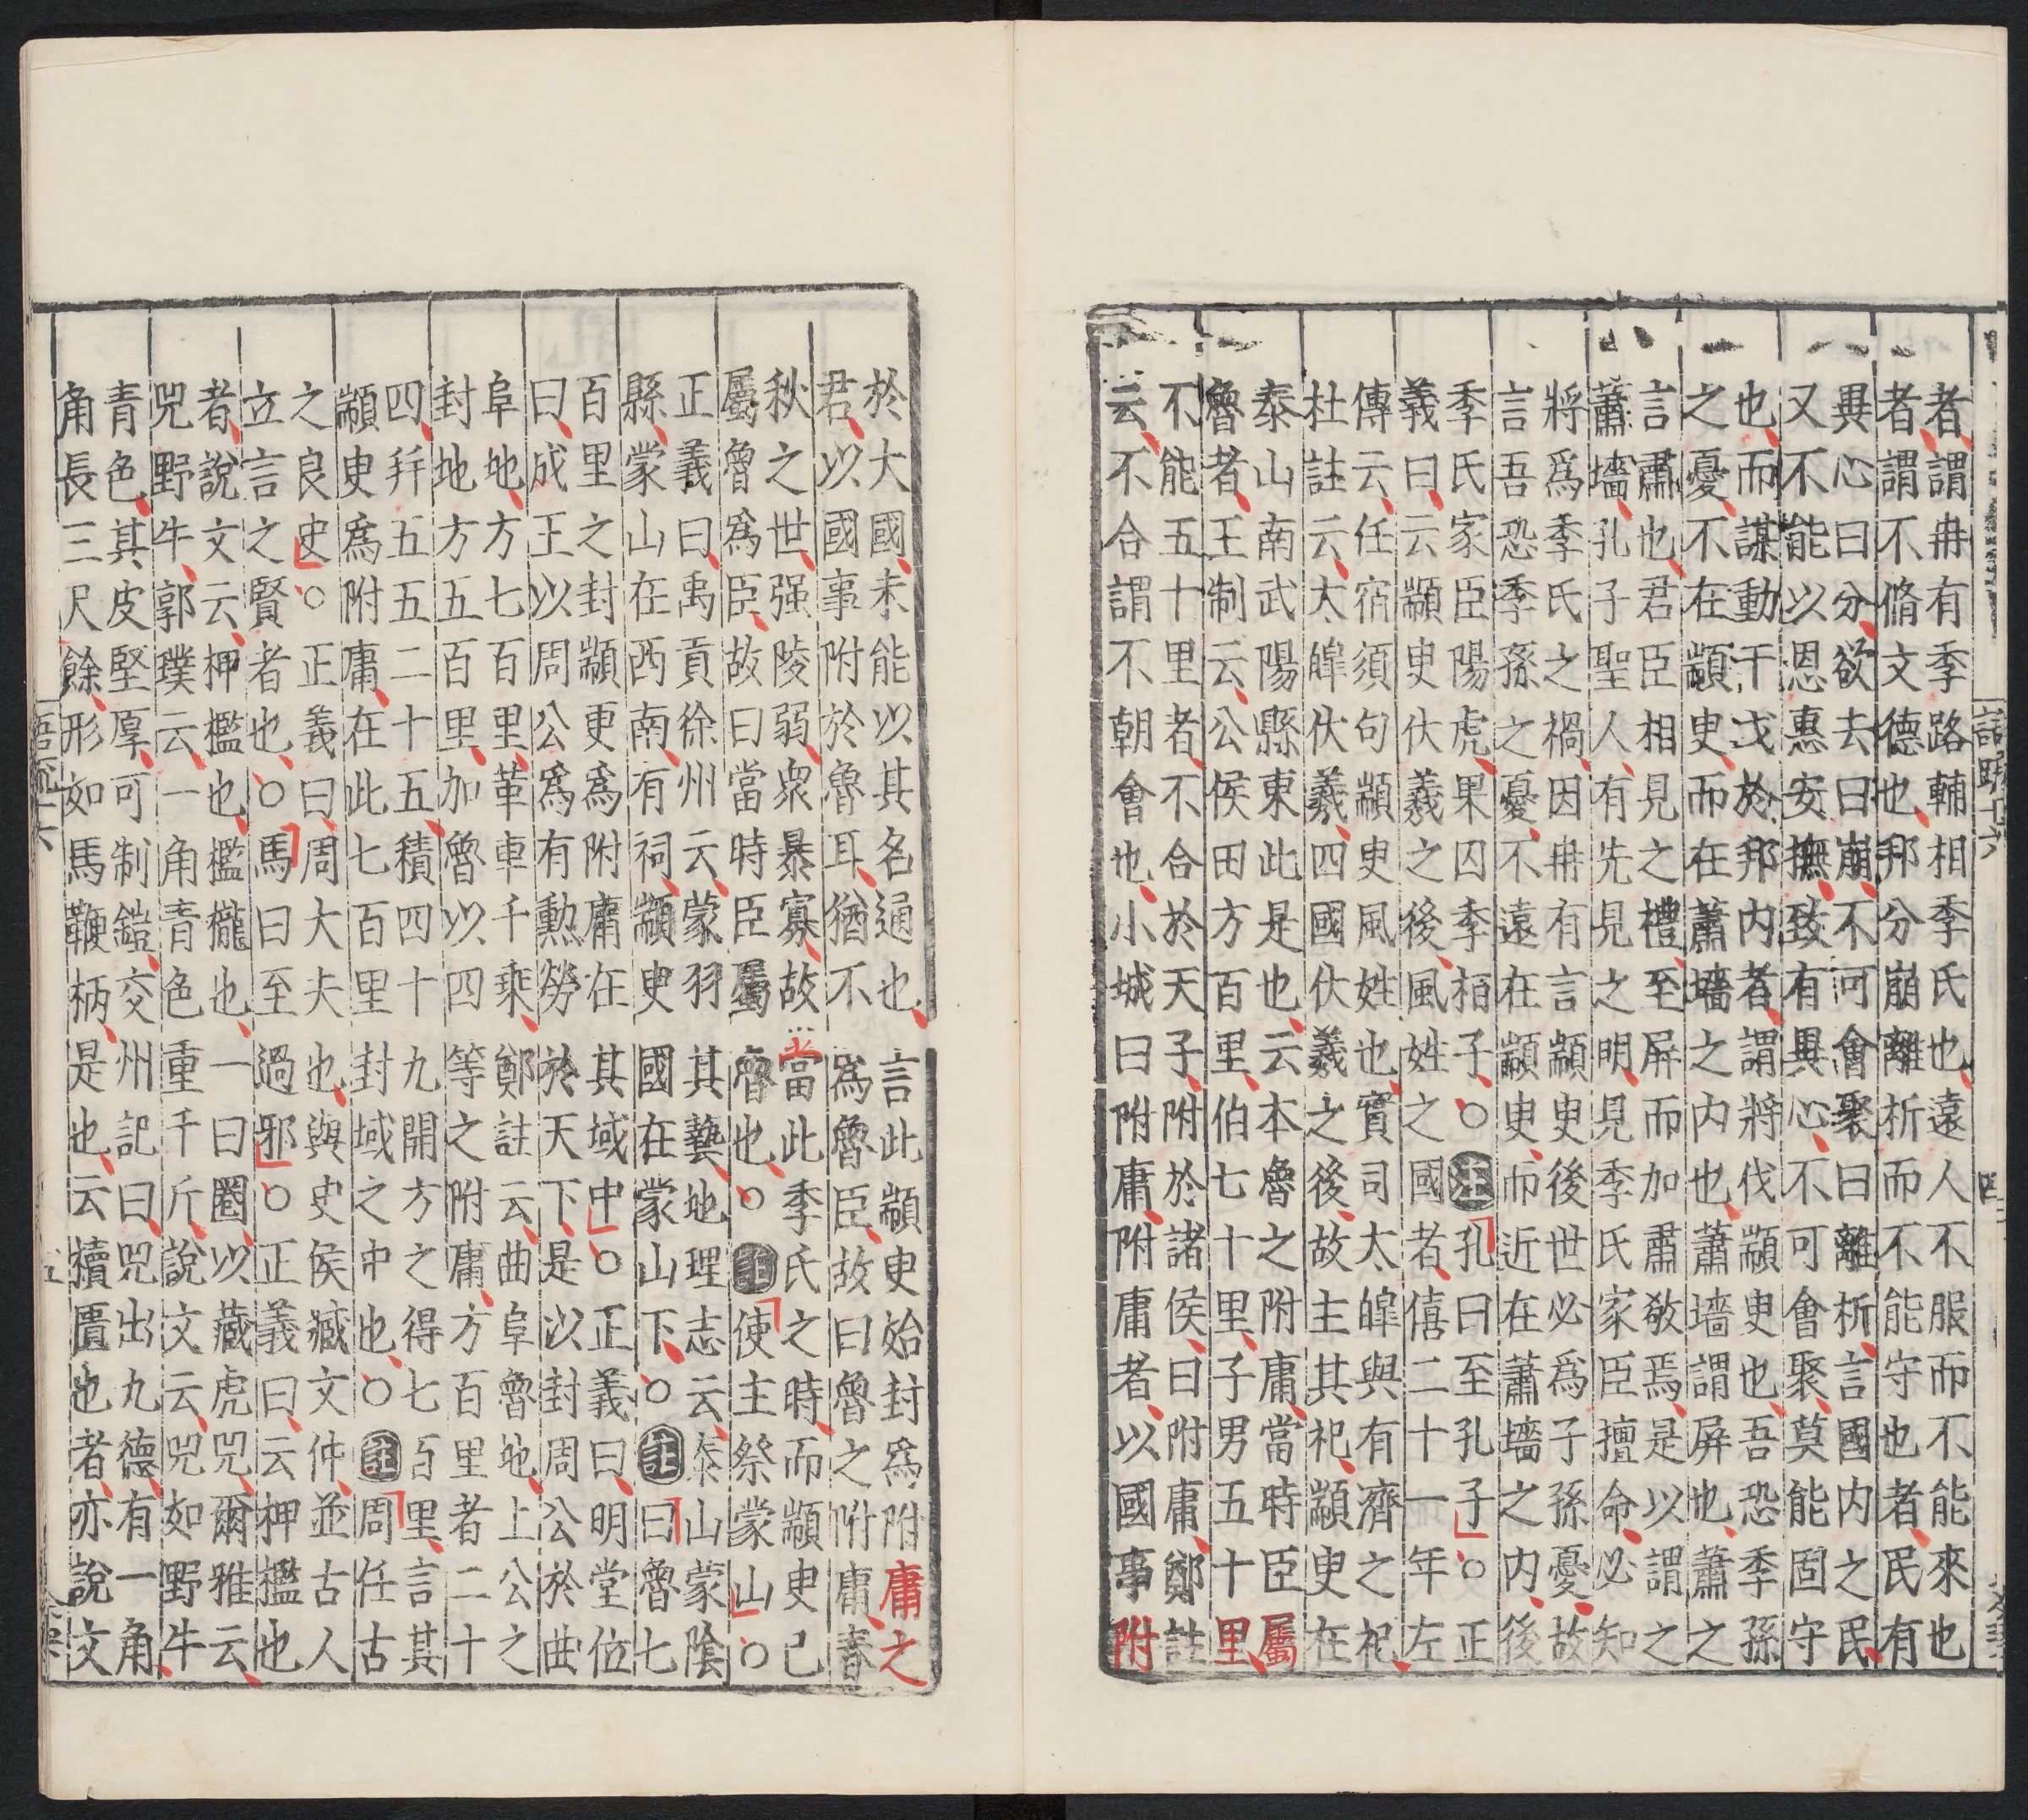 者謂冉有季路輔相季氏也遠人不服而不能來也
者謂不脩文德也邦分崩離析而不能守也者民有
異心曰分欲去曰崩不可會聚曰離析言國內之民
又不能以恩惠安撫致有異心不可會聚莫能固守
也而謀動干戈於邦内者謂將伐顓㬰也吾恐季孫
之憂不在顓㬰而在蕭墻之内也蕭墻謂屏也蕭之
言肅也君臣相見之禮至屏而加肅敬焉是以謂之
蕭墻孔子聖人有先見之明見季氏家臣擅命必知
將爲季氏之禍因冉有言顓㬰後世必爲子孫憂故
言吾恐季孫之憂不遠在顓㬰而近在蕭墻之内後
季氏家臣陽虎果囚季桓子○注孔曰至孔子○正
義曰云顓㬰伏羲之後風姓之國者僖二十一年左
傳云任宿須句顓㬰風姓也實司太皥與有濟之祀
杜註云太皥伏羲四國伏羲之後故主其祀顓㬰在
泰山南武陽縣東此是也云本魯之附庸當時臣屬
魯者王制云公侯田方百里伯七十里子男五十里
不能五十里者不合於天子附於諸侯曰附庸鄭註
云不合謂不朝會也小城曰附庸附庸者以國事附
語疏十六
於大國未能以其名通也言此顓㬰始封爲附庸之
君以國事附於魯耳猶不爲魯臣故曰魯之附庸春
秋之世强陵弱衆暴寡故當此季氏之時而顓㬰已
屬魯爲臣故曰當時臣屬魯也○註使主祭蒙山○
正義曰禹貢徐州云蒙羽其藝地理志云泰山蒙陰
縣蒙山在西南有祠顓㬰國在蒙山下○註曰魯七
百里之封顓㬰爲附庸在其域中○正義曰明堂位
曰成王以周公爲有勲勞於天下是以封周公於曲
阜地方七百里革車千乘鄭註云曲阜魯地上公之
封地方五百里加魯以四等之附庸方百里者二十
四并五五二十五積四十九開方之得七百里言其
顓㬰爲附庸在此七百里封域之中也○註周任古
之良史○正義曰周大夫也與史侯臧文仲並古人
立言之賢者也○馬曰至過邪○正義曰云柙檻也
者說文云柙檻也檻櫳也一曰圈以藏虎兕爾雅云
兕野牛郭璞云一角青色重千斤說文云兕如野牛
青色其皮堅厚可制鎧交州記曰兕出九德有一角
角長三尺餘形如馬鞭柄是也云櫝匱也者亦說文
語疏十六
五